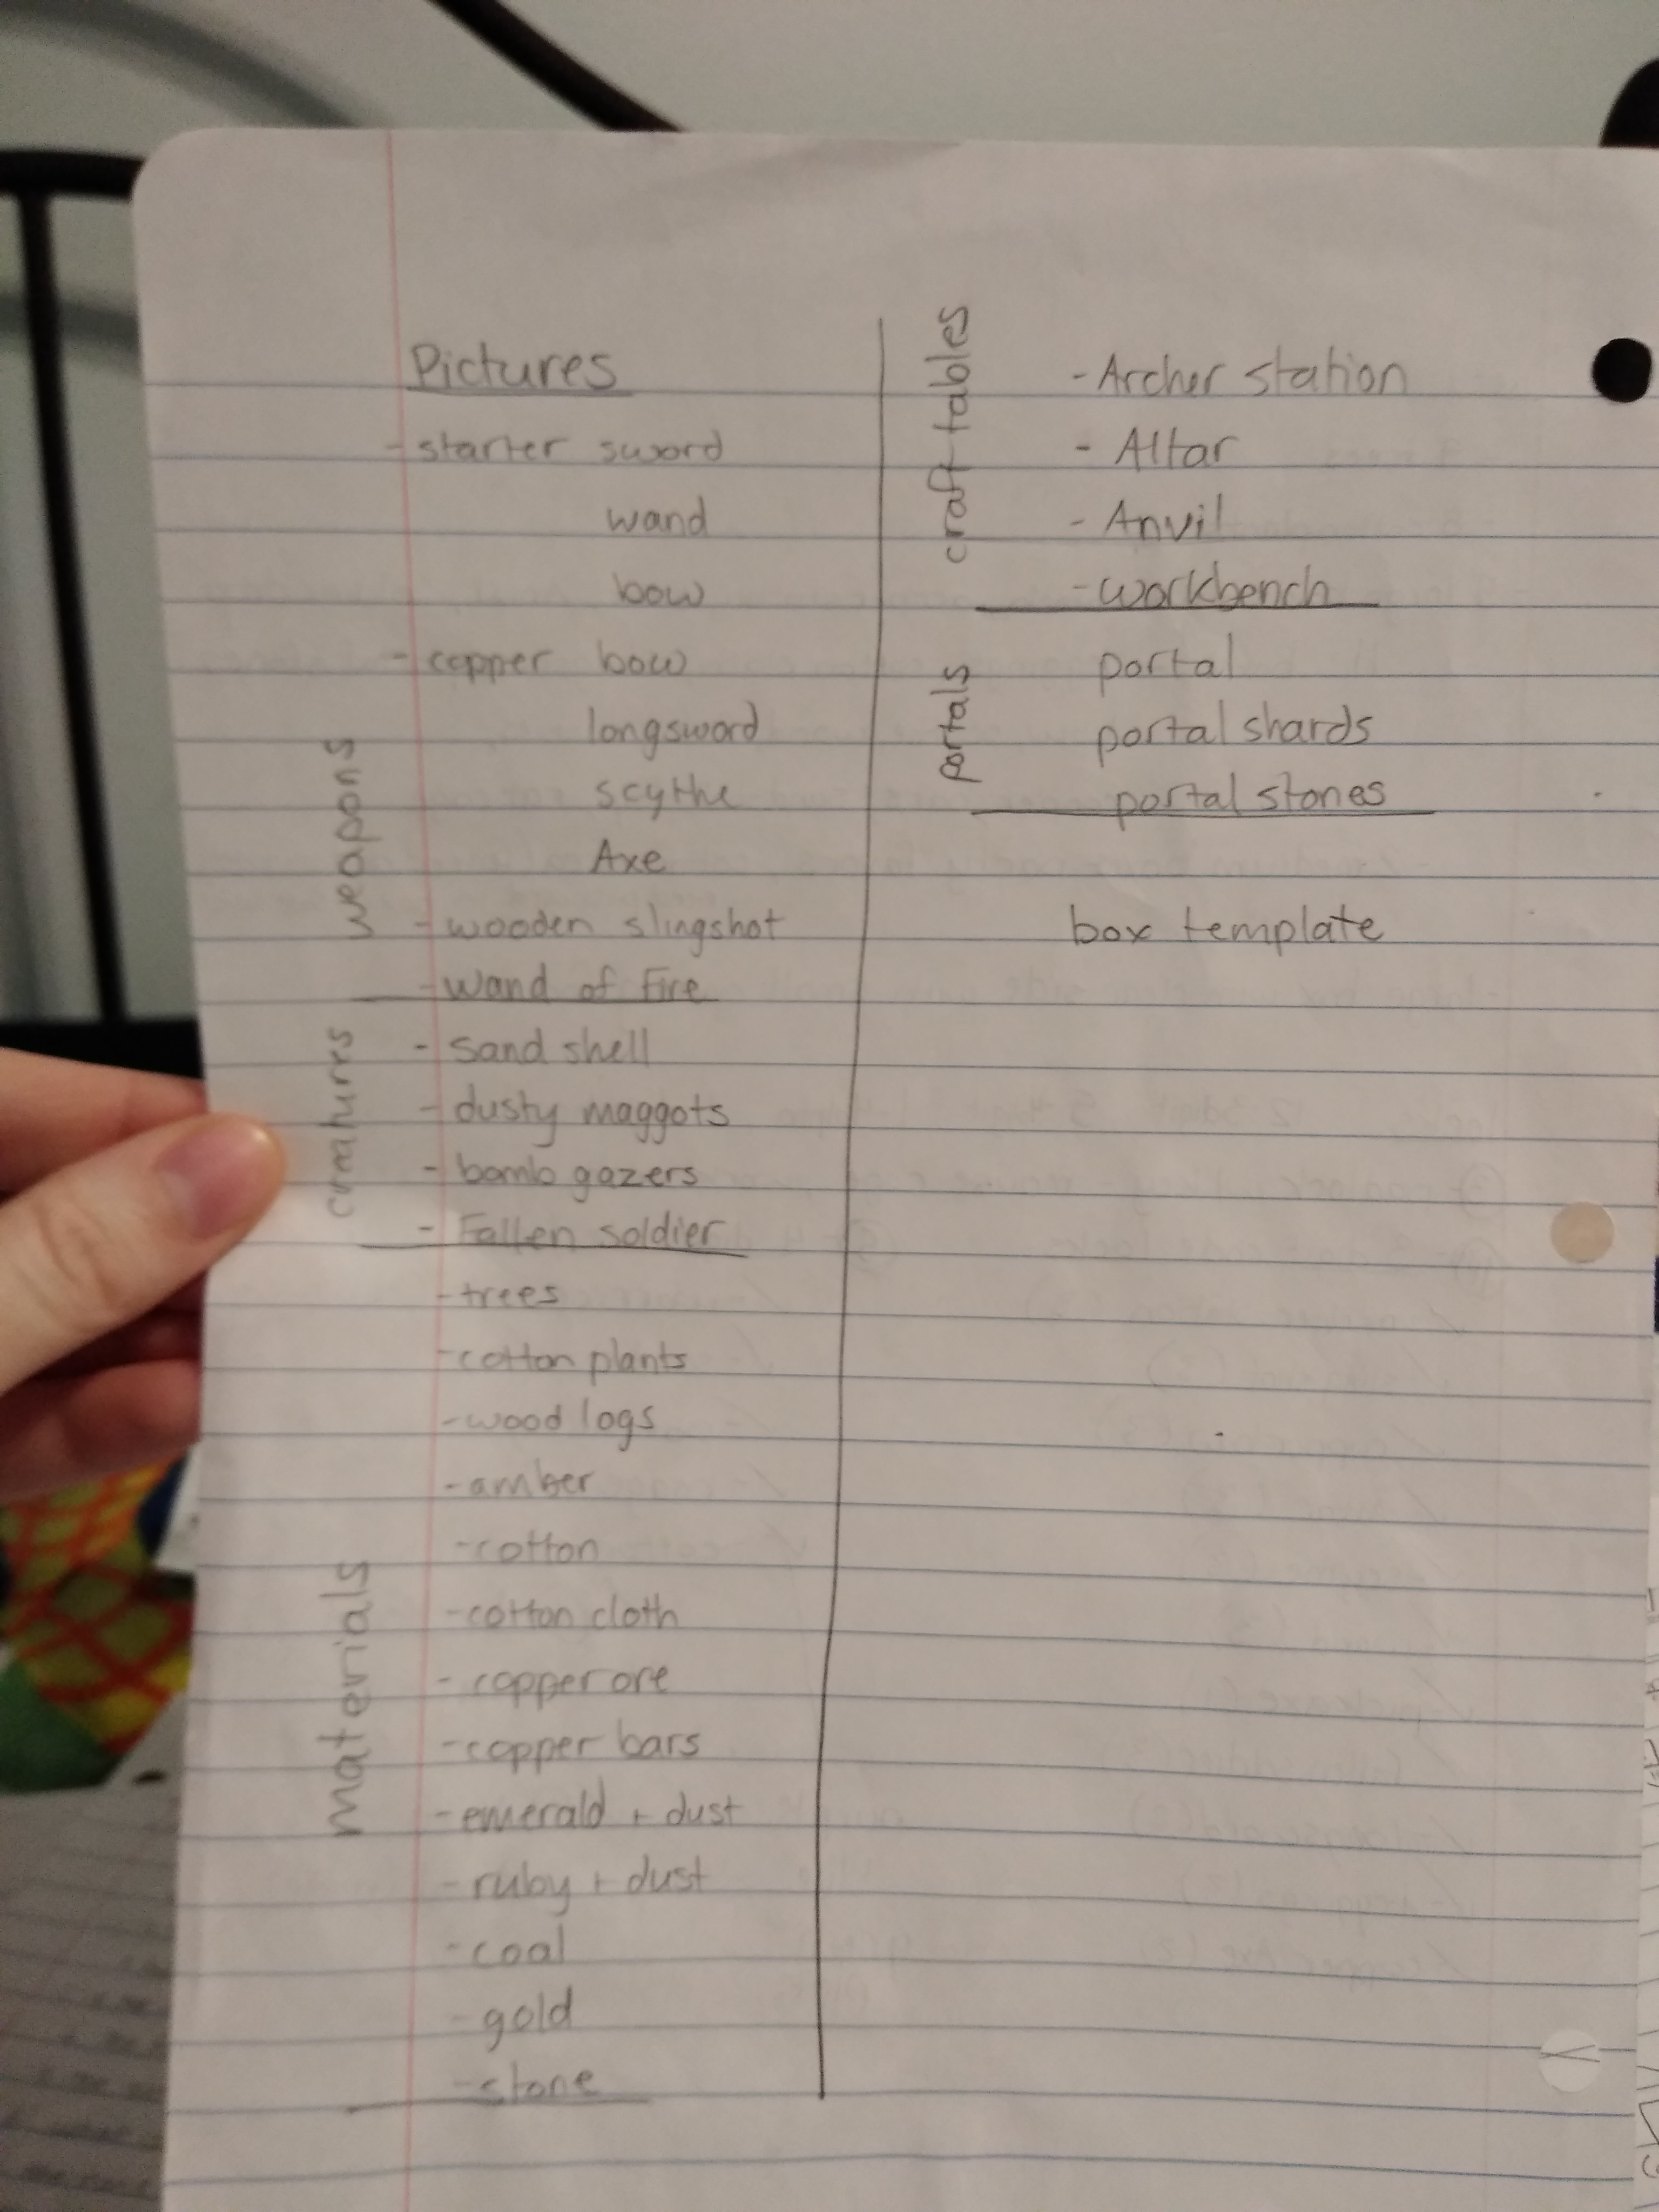 Pictures
- starter sword
wand
bow
- copper bow
longsword
scythe
Axe
- wooden slingshot
- wand of fire
weapons
- sand shell
- dusty maggots
- bomb gazers
- Fallen soldier
creatures
- trees
- cotton plants
- wood logs
- amber
- cotton
- cotton cloth
- copper ore
- copper bars
- emerald + dust
- ruby + dust
- coal
- gold
- stone
materials
craft tables
- Archer station
- Altar
- Anvil
- workbench
portals
portal
portal shards
portal stones
box template